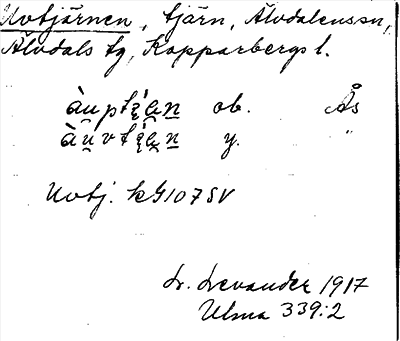 Uvtjärnen, tjärn, Älvdalens sn,
Älvdals tg, Kopparbergs l.
àu̯ptįę́ṇ ob. Ås
àu̯vtįę́ṇ y. "
Uvtj. kG107SV
L. Levander 1917
Ulma 339:2